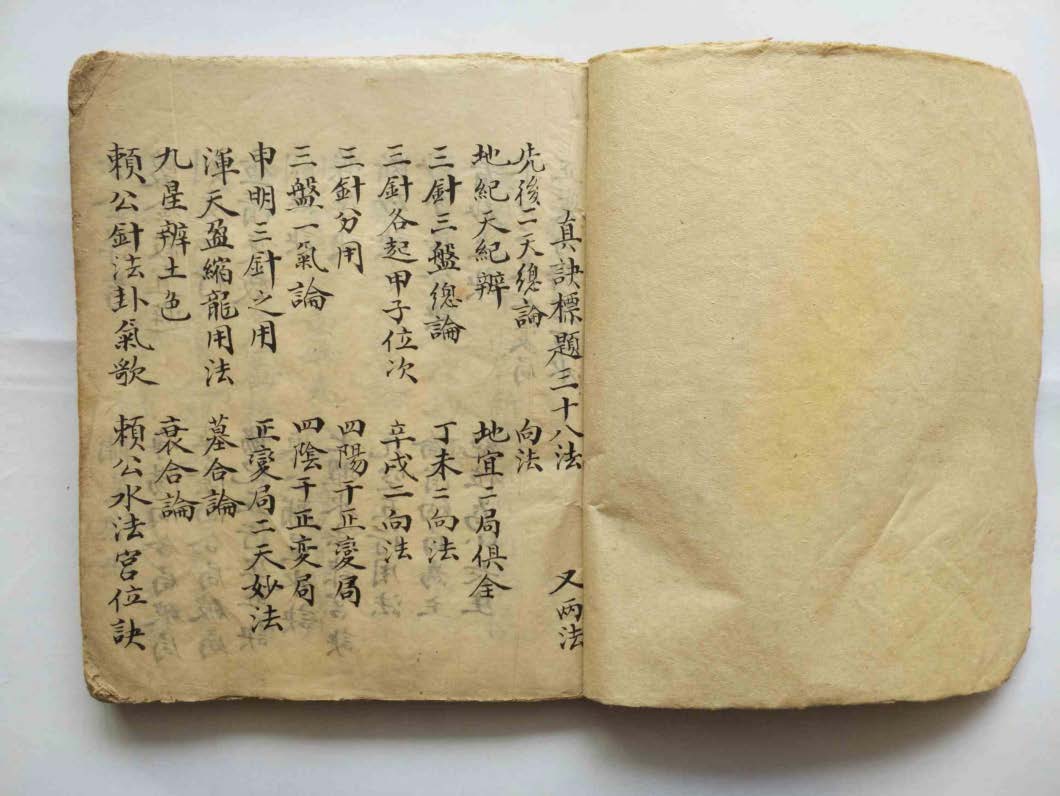 真訣標題三十八法 又兩法
先後二天總論 向法
地紀天紀辨 地宜二局俱全
三針三盤總論 丁未二向法
三針各起甲子位次 辛戌二向法
三針分用 四陽干正變局
三盤一氣論 四陰干正变局
申明三針之用 正變局二天妙法
渾天盈縮龍用法 墓合論
九星辨土色 衰合論
賴公針法卦氣歌 賴公水法宮位訣